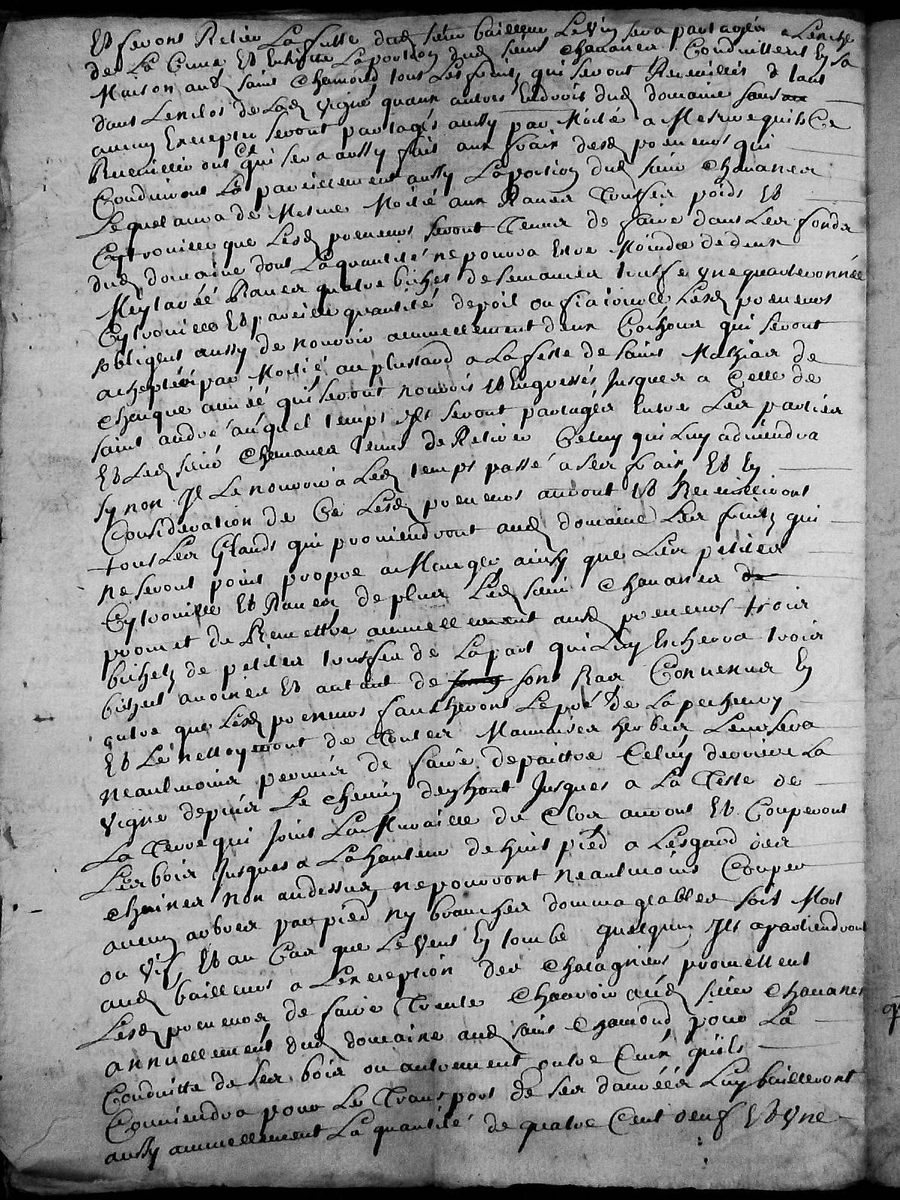 Et seront Relier La futte dud sieur bailleur Le Vin sera partagér a Lanche
de La Cuve Et Ensuitte La portion dud sieur Chavaner Conduittent En sa
Maison aud saint Chamond tous Les fruits qui seront Recueillier d tant
dans Lenclos de Lad Vigne quaux autres Endrois dud domaine sans
aucun Excepter seront partagés aussy par Moitié a Mesure quils Ce
Recueilliront Ce qui sera aussy fait aux frais desd preneurs qui
Conduiront Et pareillement aussy La portion dud sieur Chavaner
Lequel aura de Mesme Moitié aux Raves Truffes poids Et
Cytrouilles que Lesd preneurs seront Tenus de faire dans Les fondz
dud domaine dont La quantité ne pourra Estre Moindre de deux
Meytareé Raves quatre bichet de semances truffe yne quarteronnée
Cytrouille Et pareille quantité de poil ou Lesd preneurs
sobligent aussy de nourrir annuellement deux Cochons qui seront
acheptés par Moitié au plustard a La feste de saint Mathias de
Chaque année qui seront nourris Et Engressés Jusquer a Celle de
saint andré auquel temps Ils seront partagér Entre Les parties
Et Led sieur Chavaner Tenu de Retirer Celuy qui Luy adviendra
sy non Il Le nourrira Led temps passé a ses frais Et En
Consideration de Ce Lesd preneurs auront Et Recueilliront
tous Les Glands qui proviendront aud domaine Les fruits qui
ne seront point propre a Manger ainsy que Les petites
Cytrouilles Et Raves de plus Led sieur Chavaner
promet de Remettre annuellement ausd preneurs trois
bichets de petites truffes de La part qui Luy Escherra trois
bichet avoines Et autant de son Raz Convenus En
outre que Lesd preneurs faucheront Le pré de La pecherry
Et Le nettoyeront de Toutes Mauvaises herbes Leur sera
neaulmoins permis de faire depaittre Celuy derriere La
Vigne depuis Le Chemin deyhaut Jusques a La Teste de
La Terre qui Joint La Muraille du Clos auront Et Couperont
Les bois Jusques a La hauteur de huit pied a Lesgard des
Chaines non audessus ne pourront neaulmoins Couper
aucun arbres par pied ny brancher dommageables soit Mort
ou Vif Et au Cas que Le Vent En tombe quelqun Ils apartiendront
ausd bailleurs a Lexception des Chatagniers promettent
Lesd preneurs de faire Trente Charrois aud sieur Chavaner
annuellement dud domaine aud saint Chamond pour La
Conduitte de ses bois ou autrement outre Ceux quils
Conviendra pour Le Transport de ses danréér Luy bailleront
aussy annuellement La quantité de quatre Cent oeuf Et yne